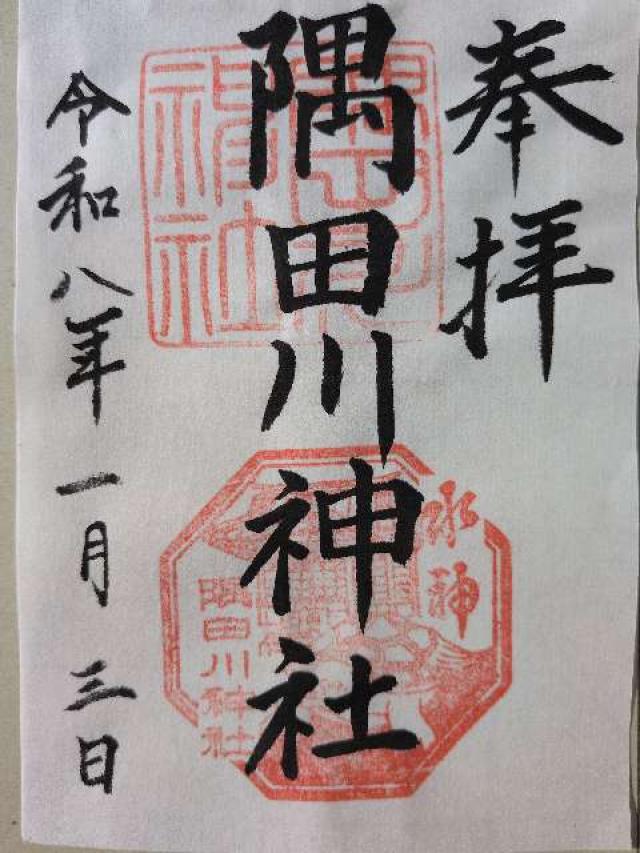 奉拝
隅田川神社
令和八年一月三日
隅田川神社
水神
隅田川神社